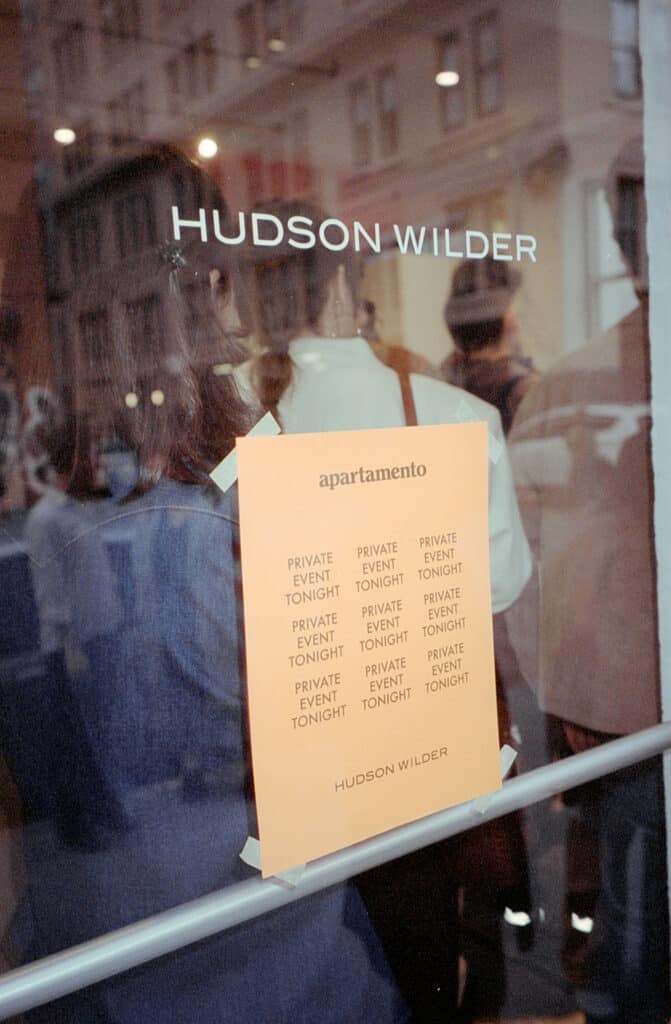 HUDSON WILDER
apartamento
PRIVATE EVENT TONIGHT PRIVATE EVENT TONIGHT PRIVATE EVENT TONIGHT
PRIVATE EVENT TONIGHT PRIVATE EVENT TONIGHT PRIVATE EVENT TONIGHT
PRIVATE EVENT TONIGHT PRIVATE EVENT TONIGHT PRIVATE EVENT TONIGHT
HUDSON WILDER